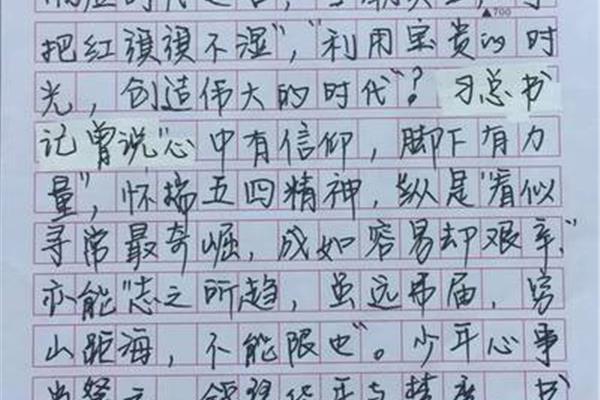 ▲700
把红旗旗不湿","利用宝贵的时
光,创造伟大的时代"?习总书
记曾说"心中有信仰,脚下有力
量",怀揣五四精神,纵是"看似
寻常最奇崛,成如容易却艰辛,"
亦能"志之所趋,虽远弗届,穷
山距海,不能限也"。少年心事